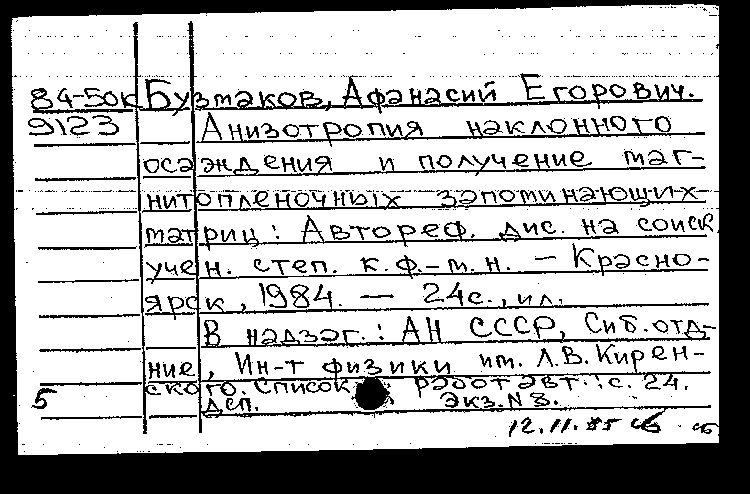 84-50к Бузмаков, Афанасий Егорович.
9123 Анизотропия наклонного
осаждения и получение маг-
нитопленочных запоминающих
матриц: Автореф. дис. на соиск.
учен. степ. к.ф.-м.н. — Красно-
ярск, 1984. — 24с., ил.
В надзаг.: АН СССР, Сиб. отд-
ние, Ин-т физики им. Л.В. Кирен-
ского. Список работ авт.: с. 24.
5 Дсп. Экз. N 8.
12.11.85